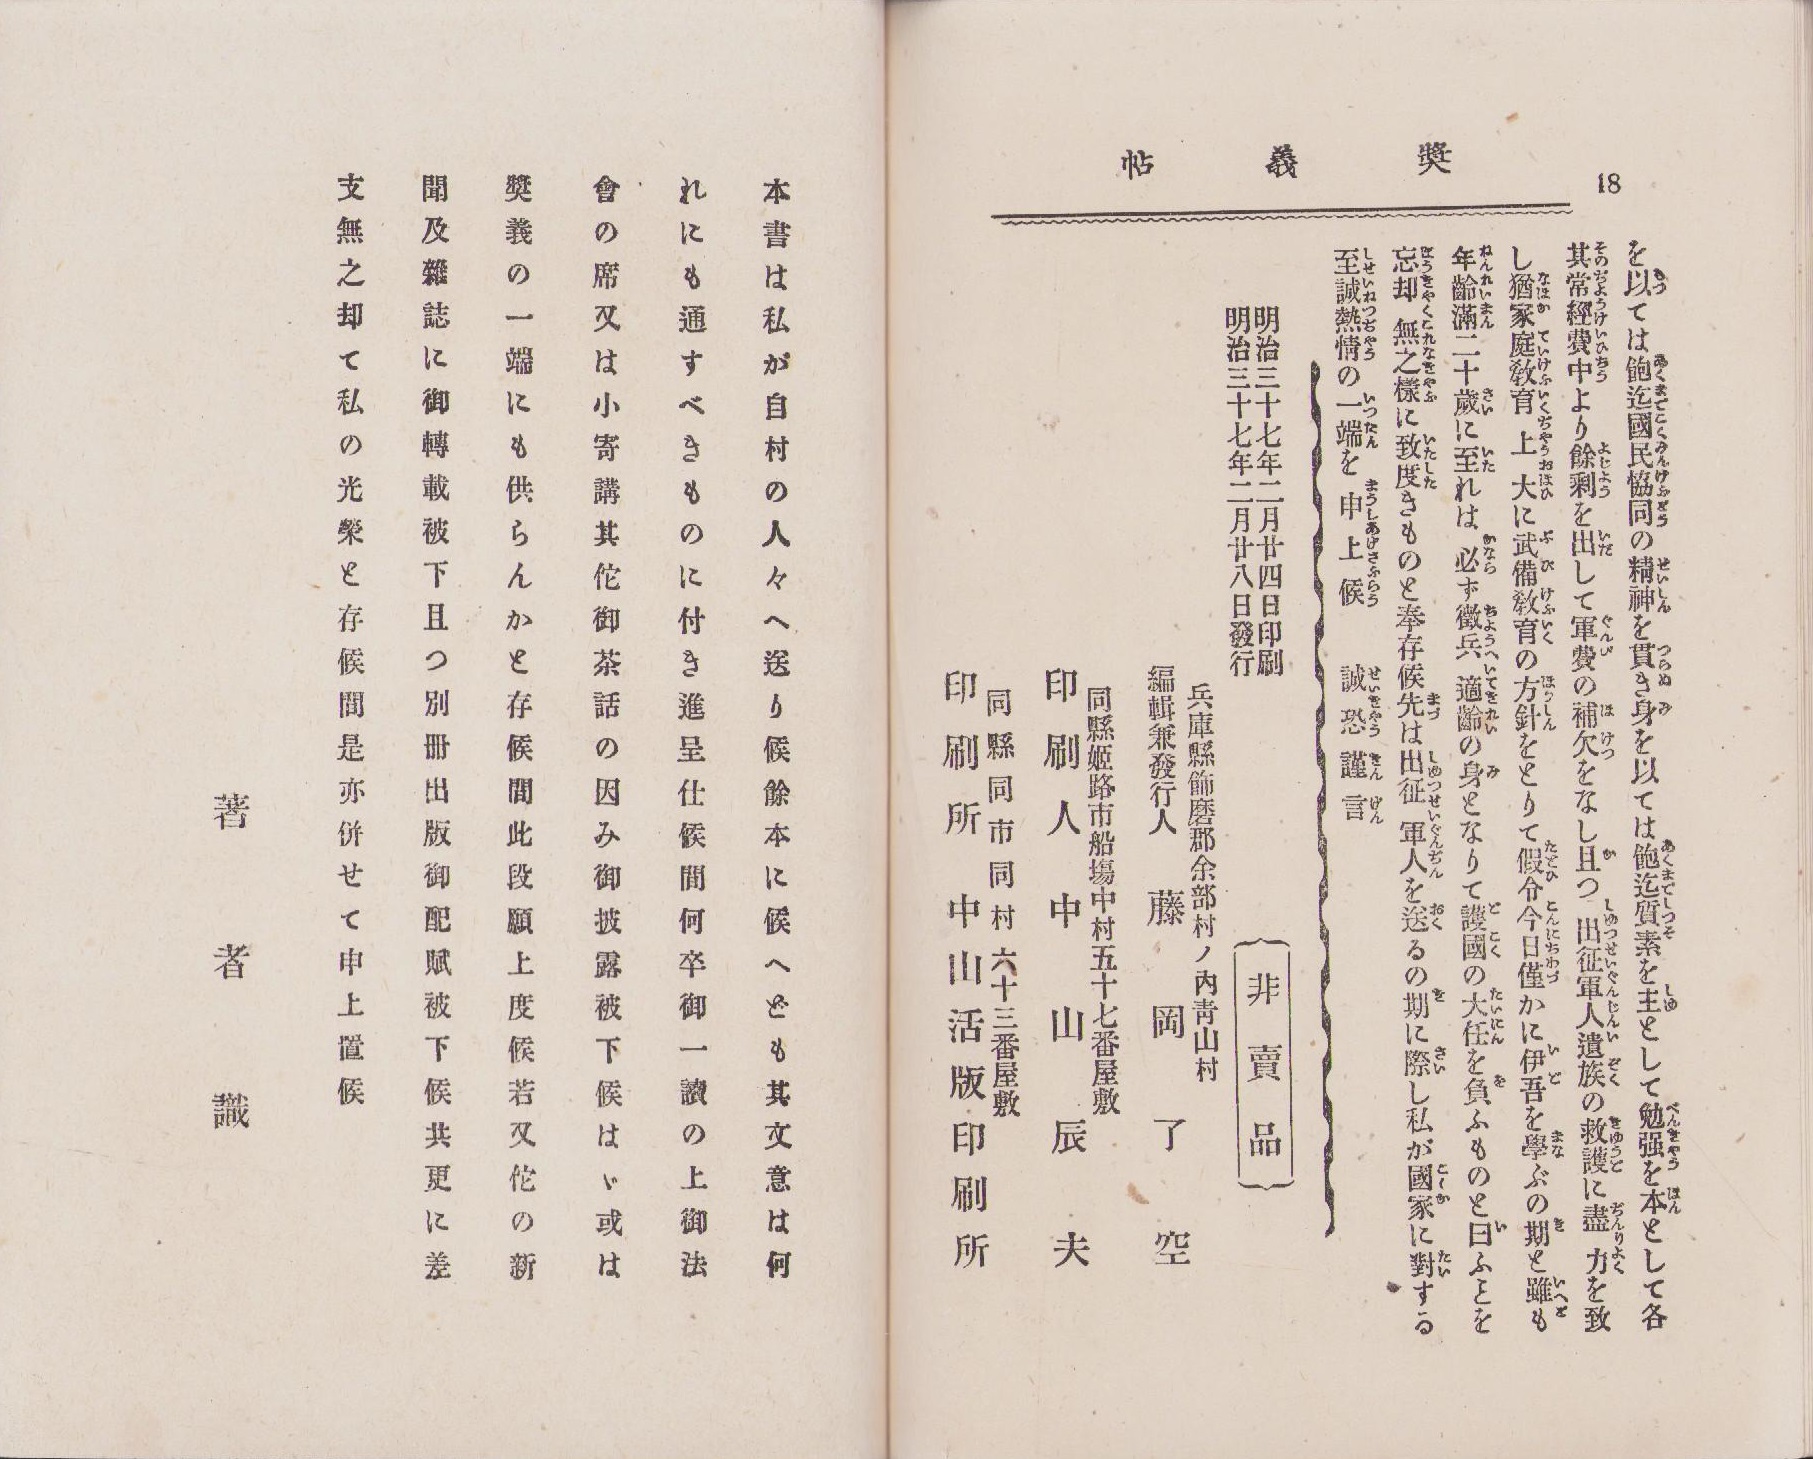 獎義帖
18
を以ては飽迄國民協同の精神を貫き身を以ては飽迄質素を主として勉强を本として各
其常經費中より餘剩を出して軍費の補欠をなし且つ出征軍人遺族の救護に盡力を致
し猶家庭敎育上大に武備敎育の方針をとりて假令今日僅かに伊吾を學ぶの期と雖も
年齡滿二十歲に至れは必ず徵兵適齡の身となりて護國の大任を負ふものと曰ふことを
忘却無之樣に致度きものと奉存候先は出征軍人を送るの期に際し私が國家に對する
至誠熱情の一端を申上候　誠恐謹言
明治三十七年二月廿四日印刷
明治三十七年二月廿八日發行
非賣品
兵庫縣飾磨郡余部村ノ內靑山村
編輯兼發行人　藤岡了空
同縣姬路市船塲中村五十七番屋敷
印刷人　中山辰夫
同縣同市同村六十三番屋敷
印刷所　中山活版印刷所
本書は私が自村の人々へ送り候餘本に候へども其文意は何
れにも通すべきものに付き進呈仕候間何卒御一讀の上御法
會の席又は小寄講其佗御茶話の因み御披露被下候はゞ或は
獎義の一端にも供らんかと存候間此段願上度候若又佗の新
聞及雜誌に御轉載被下且つ別冊出版御配賦被下候共更に差
支無之却て私の光榮と存候間是亦併せて申上置候
著者識